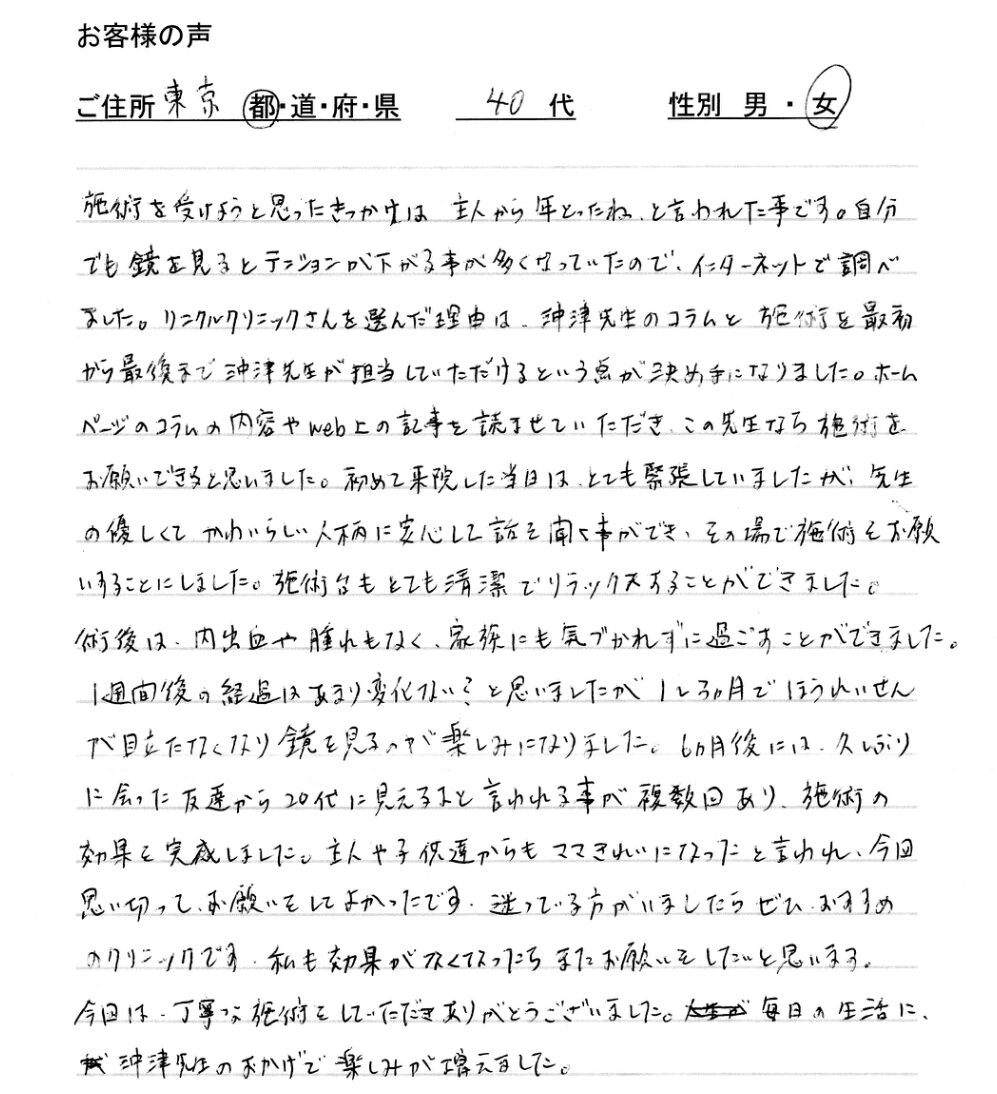 お客様の声
ご住所 東京 都・道・府・県 40 代 性別 男 ・ 女
施術を受けようと思ったきっかけは 主人から年とったね、と言われた事です。自分
でも鏡を見るとテンションが下がる事が多くなっていたので、インターネットで調べ
ました。リンクルクリニックさんを選んだ理由は、沖津先生のコラムと施術を最初
から最後まで沖津先生が担当していただけるという点が決め手になりました。ホーム
ページのコラムの内容やweb上の記事を読ませていただき、この先生なら施術を
お願いできると思いました。初めて来院した当日は、とても緊張していましたが、先生
の優しくてかわいらしい人柄に安心して話を聞く事ができ、その場で施術をお願
いすることにしました。施術台もとても清潔でリラックスすることができました。
術後は、内出血や腫れもなく、家族にも気づかれずに過ごすことができました。
1週間後の経過はあまり変化ない？と思いましたが1〜3ヵ月でほうれいせん
が目立たなくなり鏡を見るのが楽しみになりました。6ヵ月後には、久しぶり
に会った友達から20代に見えるよと言われる事が複数回あり、施術の
効果を実感しました。主人や子供達からもママきれいになったと言われ、今回
思い切って、お願いをしてよかったです。迷っている方がいましたらぜひ、おすすめ
のクリニックです。私も効果がなくなったらまたお願いをしたいと思います。
今回は、丁寧な施術をしていただきありがとうございました。毎日の生活に、
沖津先生のおかげで楽しみが増えました。